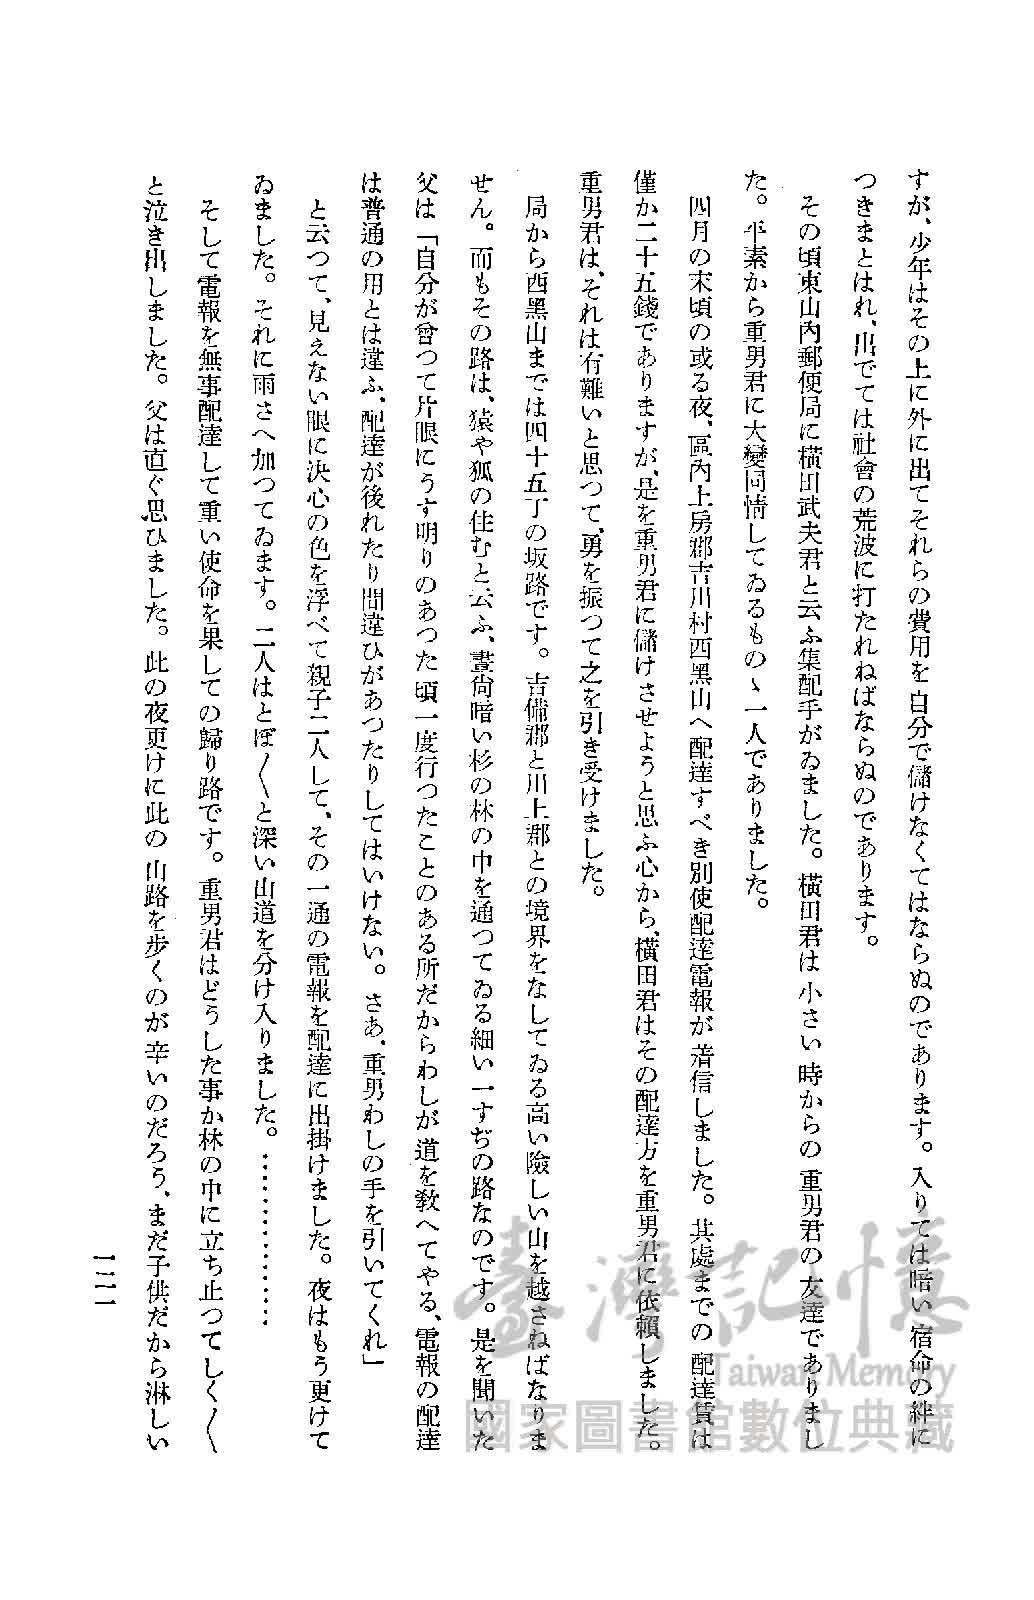 すが、少年はその上に外に出てそれらの費用を自分で儲けなくてはならぬのであります。入りては暗い宿命の絆に
つきまとはれ、出でては社會の荒波に打たれねばならぬのであります。
その頃東山內郵便局に橫田武夫君と云ふ集配手がゐました。橫田君は小さい時からの重男君の友達でありまし
た。平素から重男君に大變同情してゐるものゝ一人でありました。
四月の末頃の或る夜、區內上房郡吉川村西黑山へ配達すべき別使配達電報が着信しました。其處までの配達賃は
僅か二十五錢でありますが、是を重男君に儲けさせようと思ふ心から、橫田君はその配達方を重男君に依賴しました。
重男君は、それは有難いと思つて、勇を振つて之を引き受けました。
局から西黑山までは四十五丁の坂路です。吉備郡と川上郡との境界をなしてゐる高い險しい山を越さねばなりま
せん。而もその路は、猿や狐の住むと云ふ、晝尙暗い杉の林の中を通つてゐる細い一すぢの路なのです。是を聞いた
父は「自分が曾つて片眼にうす明りのあつた頃一度行つたことのある所だからわしが道を敎へてやる、電報の配達
は普通の用とは違ふ、配達が後れたり間違ひがあつたりしてはいけない。さあ、重男わしの手を引いてくれ」
と云つて、見えない眼に決心の色を浮べて親子二人して、その一通の電報を配達に出掛けました。夜はもう更けて
ゐました。それに雨さへ加つてゐます。二人はとぼ〱と深い山道を分け入りました。……………
そして電報を無事配達して重い使命を果しての歸り路です。重男君はどうした事か林の中に立ち止つてしく〱
と泣き出しました。父は直ぐ思ひました。此の夜更けに此の山路を步くのが辛いのだろう、まだ子供だから淋しい
一二一
臺灣記憶
Taiwan Memory
國家圖書館數位典藏